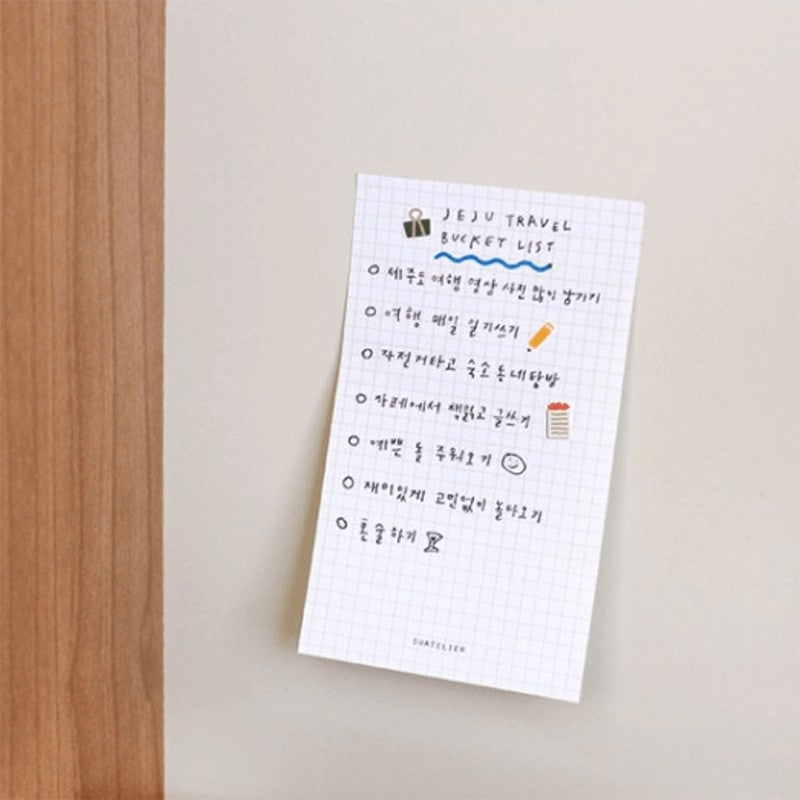 JEJU TRAVEL
BUCKET LIST
제주도 여행 영상 사진 많이 남기기
여행 매일 일기쓰기
자전거타고 숙소 동네탐방
카페에서 책읽고 글쓰기
예쁜 돌 주워오기
재미있게 고민없이 놀다오기
혼술하기